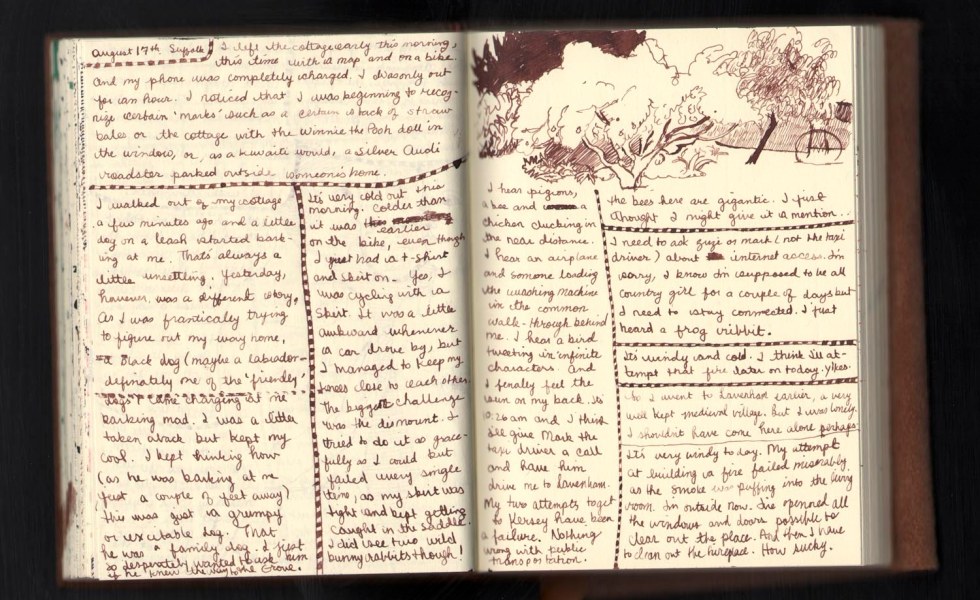 August 17th Suffolk
I left the cottage early this morning,
this time with a map and on a bike
and my phone was completely charged. I was only out
for an hour. I noticed that I was beginning to recog-
nize certain 'marks' such as a certain stack of straw
bales or the cottage with the Winnie the Pooh doll in
the window, or, as a Kuwaiti would, a Silver Audi
roadster parked outside someone's home.
I walked out of my cottage
a few minutes ago and a little
dog on a leash started bark-
ing at me. That's always a
little unsettling. Yesterday,
however, was a different story,
As I was frantically trying
to figure out my way home,
a Black dog (maybe a labrador -
definately one of the 'friendly'
dogs) came charging at me
barking mad. I was a little
taken aback but kept my
cool. I kept thinking how
(as he was barking at me
just a couple of feet away)
this was just a grumpy
or excitable dog. That
he was a family dog. I just
so desperately wanted to ask him
if he knew the way to the Grove.
Its very cold out this
morning. Colder than
it was earlier
on the bike, even though
I just had a t-shirt
and skirt on. Yes, I
was cycling with a
skirt. It was a little
awkward whenever
a car drove by, but
I managed to keep my
knees close to each other.
The biggest challenge
was the dismount. I
tried to do it as grace-
fully as I could but
failed every single
time, as my skirt was
tight and kept getting
caught in the saddle.
I did see two wild
bunny rabbits though!
I hear pigeons,
a bee and a
chicken clucking in
the near distance.
I hear an airplane
and someone loading
the washing machine
in the common
walk-through behind
me. I hear a bird
tweeting in infinite
characters. And
I finally feel the
sun on my back. Its
10:26 am and I think
I'll give Mark the
taxi driver a call
and have him
drive me to Lavenham.
My two attempts to get
to Kersey have been
a failure. Nothing
wrong with public
transportation.
the bees here are gigantic. I just
thought I might give it a mention.
I need to ask or Mark (not the taxi
driver) about internet access. Im
sorry, I know Im supposed to be all
country girl for a couple of days but
I need to stay connected. I just
heard a frog ribbit.
Its windy and cold. I think I'll at-
tempt that fire later on today. Yikes.
So I went to Lavenham earlier, a very
well kept medieval village. But I was lonely.
I shouldn't have come here alone perhaps.
Its very windy today. My attempt
at building a fire failed miserably
as the smoke was puffing into the living
room. Im outside now. I've openned all
the windows and doors possible to
clear out the place. And then I have
to clean out the fireplace. How sucky.